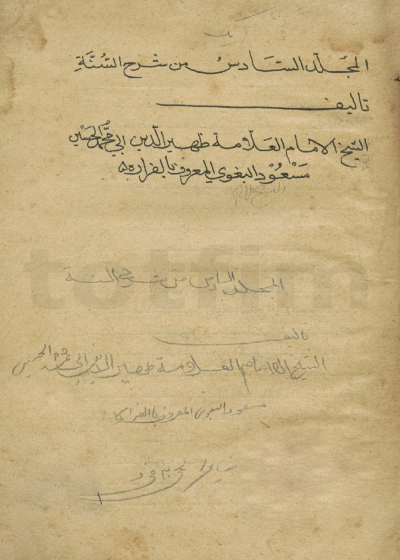 المجلد السادس من شرح السنة
تاليف
الشيخ الامام العلامة ظهير الدين ابي محمد الحسين
مسعود البغوي المعروف بالفراء
المجلد السادس من شرح السنة
تاليف
الشيخ الامام العلامة ظهير الدين ابي محمد الحسين
مسعود البغوي المعروف بالفراء